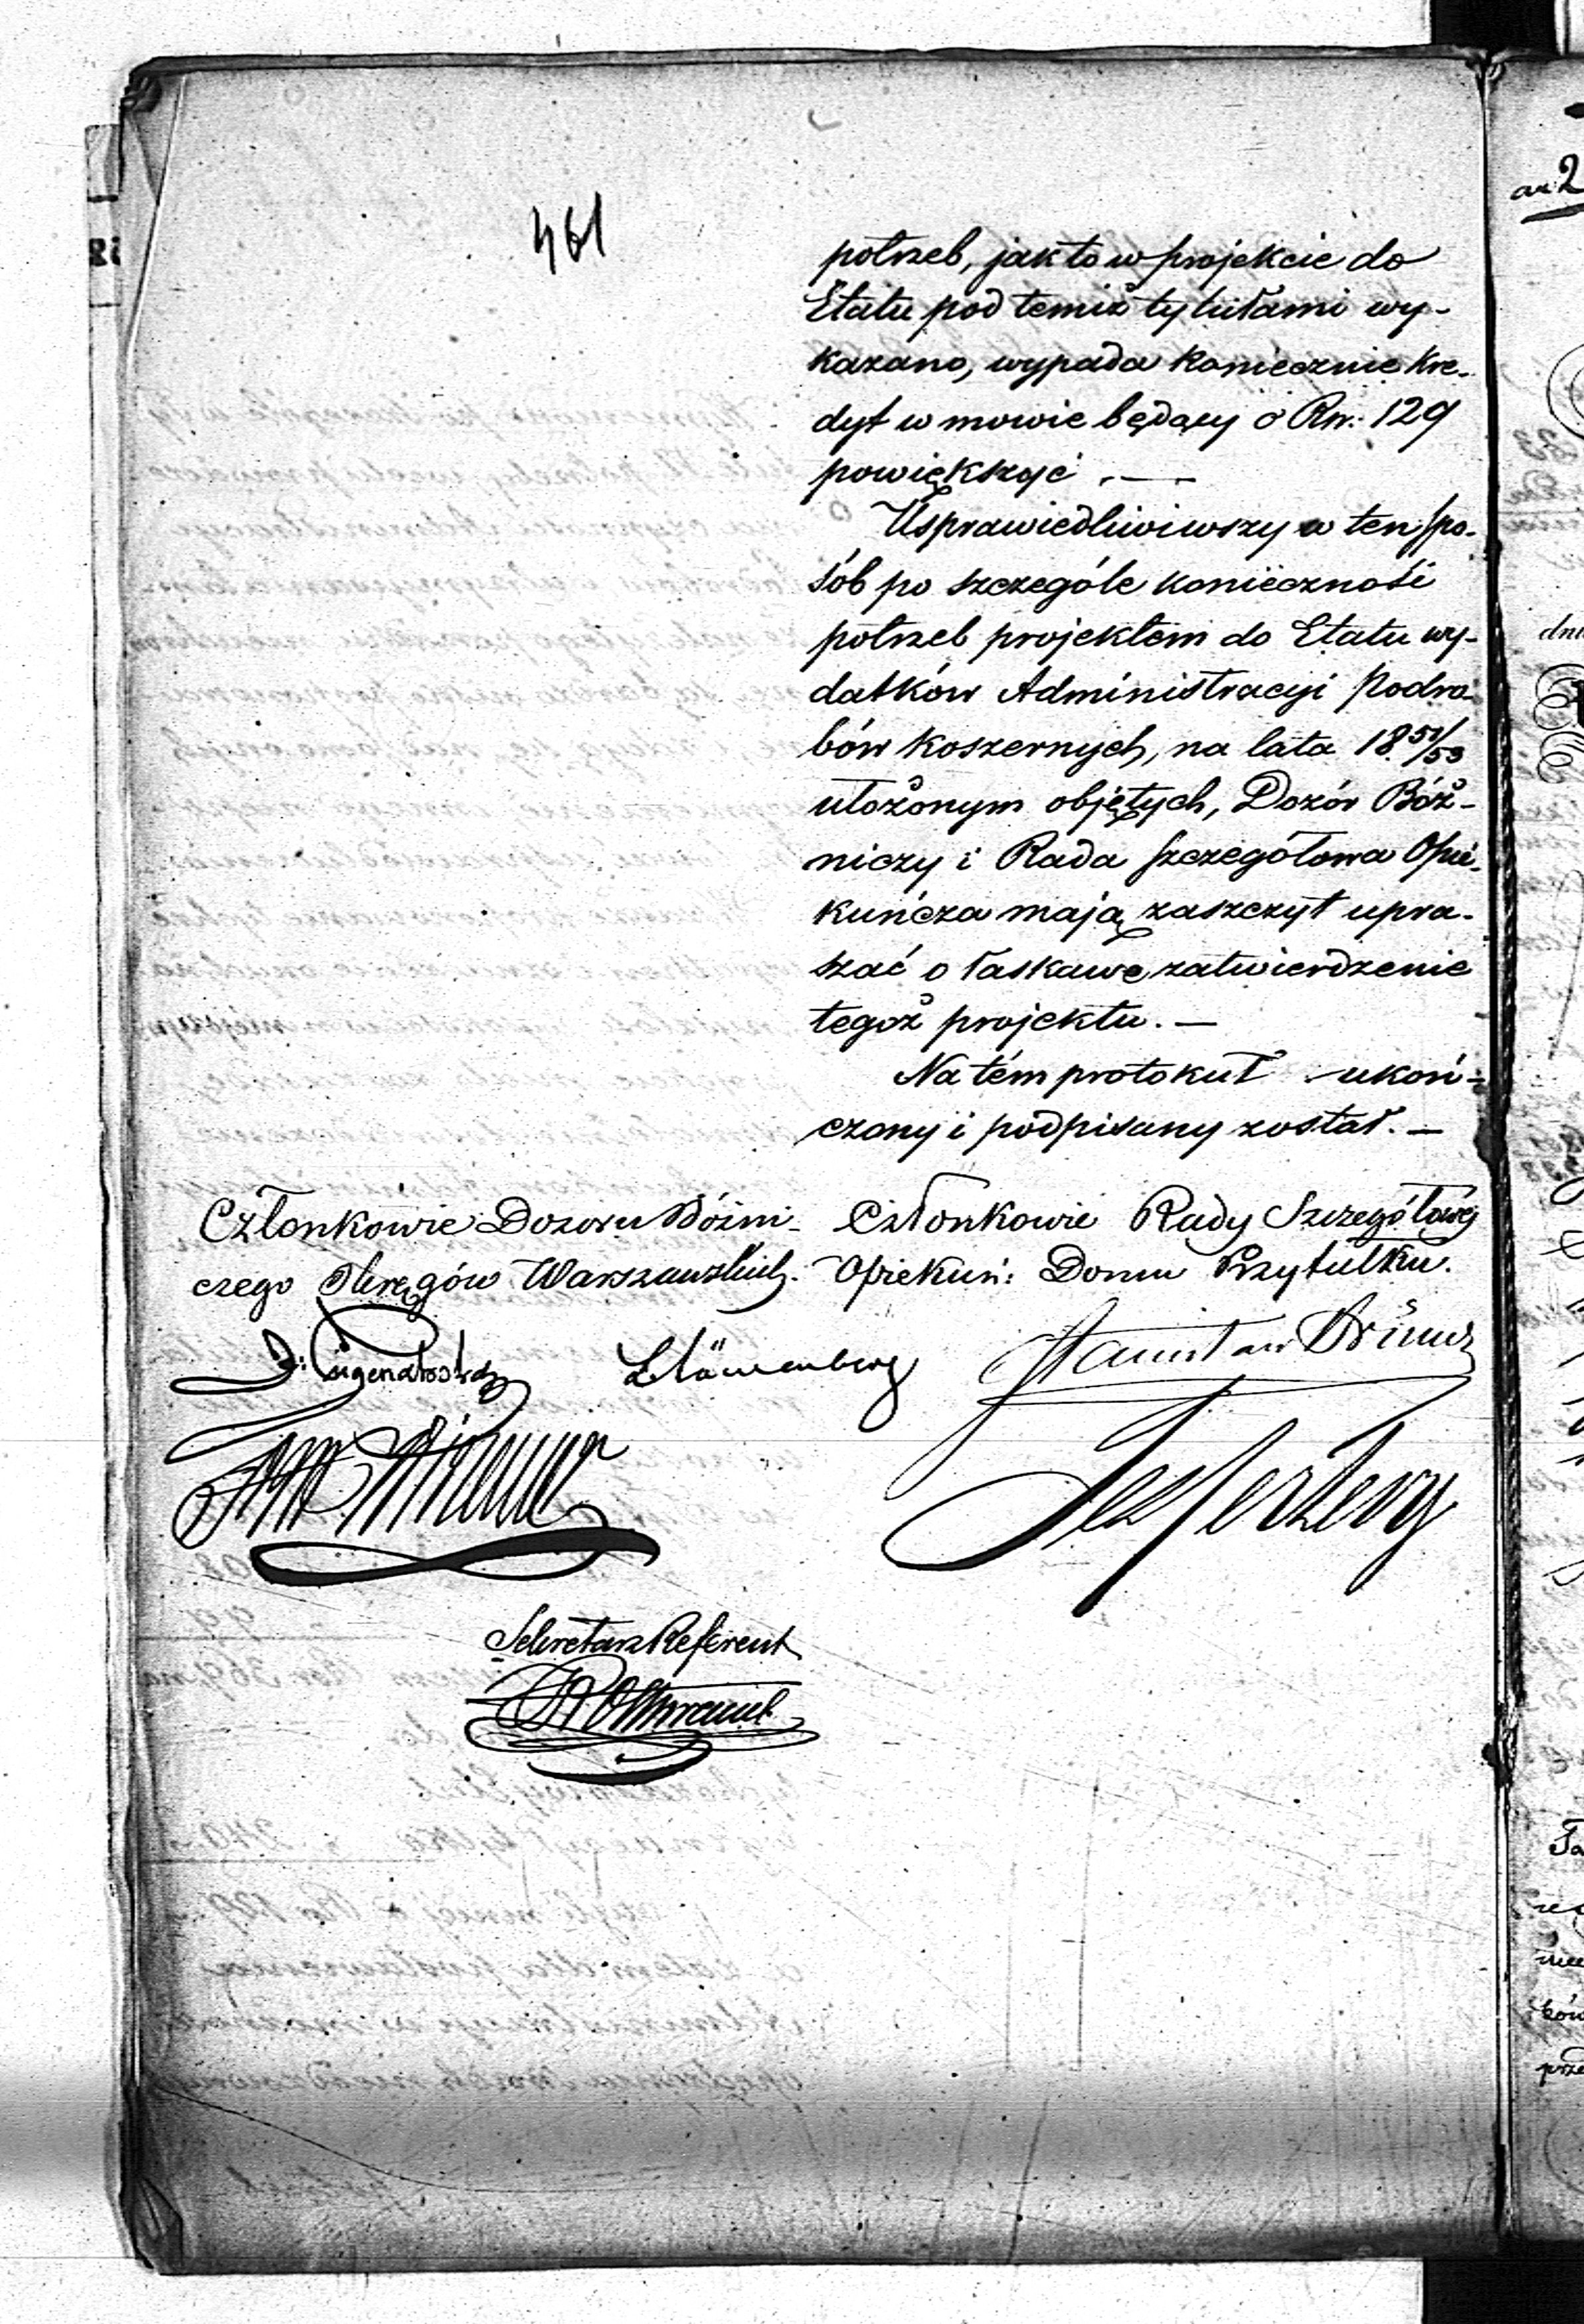 461
potrzeb, jak to w projekcie do
Etatu pod temiż tytułami wy-
kazano, wypada koniecznie kre-
dyt w mowie będący o Rsr. 129
powiększyć. —
Usprawiedliwiwszy w ten spo-
sób po szczególe konieczności
potrzeb projektem do Etatu wy-
datków Administracyi Podro-
bów koszernych, na lata 18 51/53
ułożonym objętych, Dozór Bóż-
niczy i Rada Szczegółowa Opie-
kuńcza mają zaszczyt upra-
szać o łaskawe zatwierdzenie
tegoż projektu. —
Na tém protokuł ukoń-
czony i podpisany został. —
Członkowie Dozoru Bóżni-
czego Okręgów Warszawskich.
Członkowie Rady Szczegółowej
Opiekuń: Domu Przytułku.
Sekretarz Referent